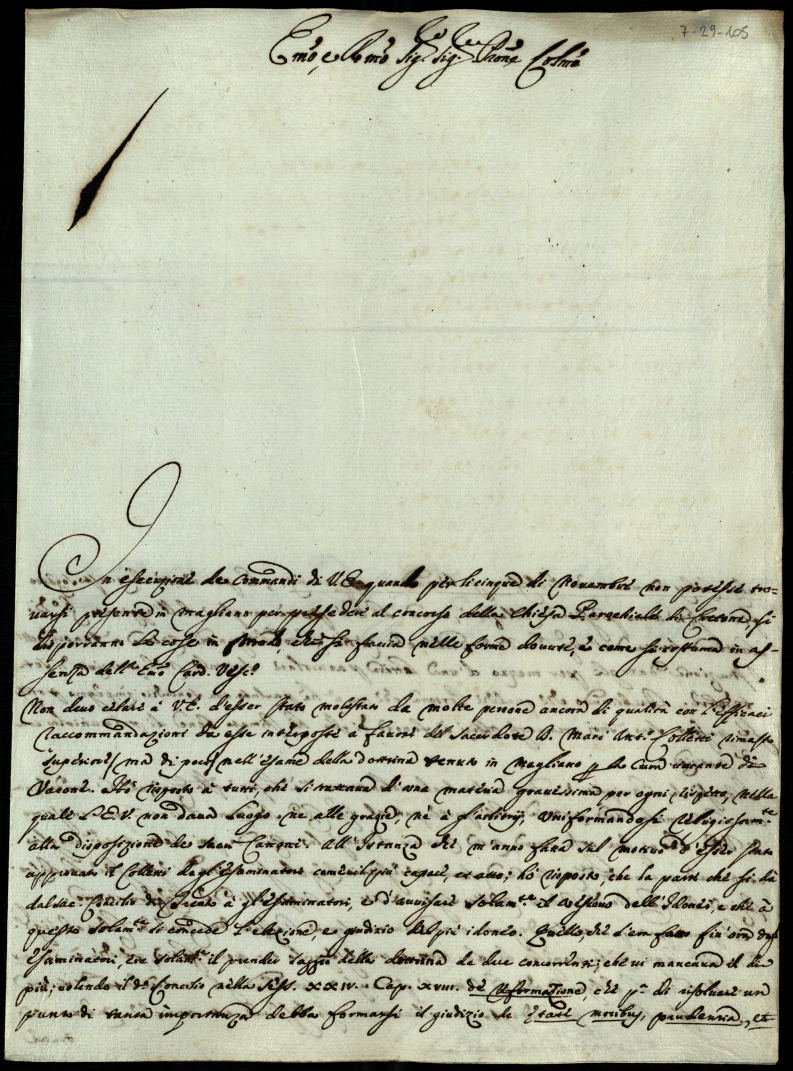 7-29-105
Emo, e Rmo Sig.r Sig.r Prone Colmo
In esecuzione de Commandi di V.E. quando per li cinque di Novembre non potesse tro=
varsi presente in Magliano per presedere al concorso della Chiesa Parochiale di si
disporranno le cose in modo che si faccia nelle forme dovute, e come si costuma in as=
senza dell'Emo Card. Vesc.o
Non devo celare à V.E. d'esser stato molestato da molte persone ancora di qualità con efficaci
raccommandazioni da esse interposte à favore del Sacerdote D. Mari' Ant.o Colletti rimasto
superiore/ mà di poco/ nell'esame della dottrina tenuto in Magliano p la Cura vacante di
Vacone. Hò risposto à tutti, che si trattava d'una materia gravissima per ogni rispetto, nella
quale l'E.V. non dava luogo ne alle grazie, ne à gl'arbitrij, uniformandosi religiosam.te
alla disposizione de Sacri Canoni. All'Istanza che m'anno fatta sul motivo d'essere stato
approvato il Colletti dagl'Esaminatori come il più capace, et atto; hò risposto, che la parte che si dà
dal Sac. Concilio di Trento à gl'Esaminatori, è d'avvisare solam.te il Vescovo dell'Idonei, e che à
questo solam.te si concede l'elezzione, e giudizio del più idoneo. Quello, che s'era fatto fin'ora dagl'
Esaminatori, era solam.te il prender saggio della dottrina de due concorrenti; che vi mancava il di
più; volendo il d.o Concilio nella Sess. XXIV. Cap. XVIII. de Reformatione, che p.a di risolvere un
punto di tanta importanza debba formarsi il giudizio de Etate moribus, prudentia, et